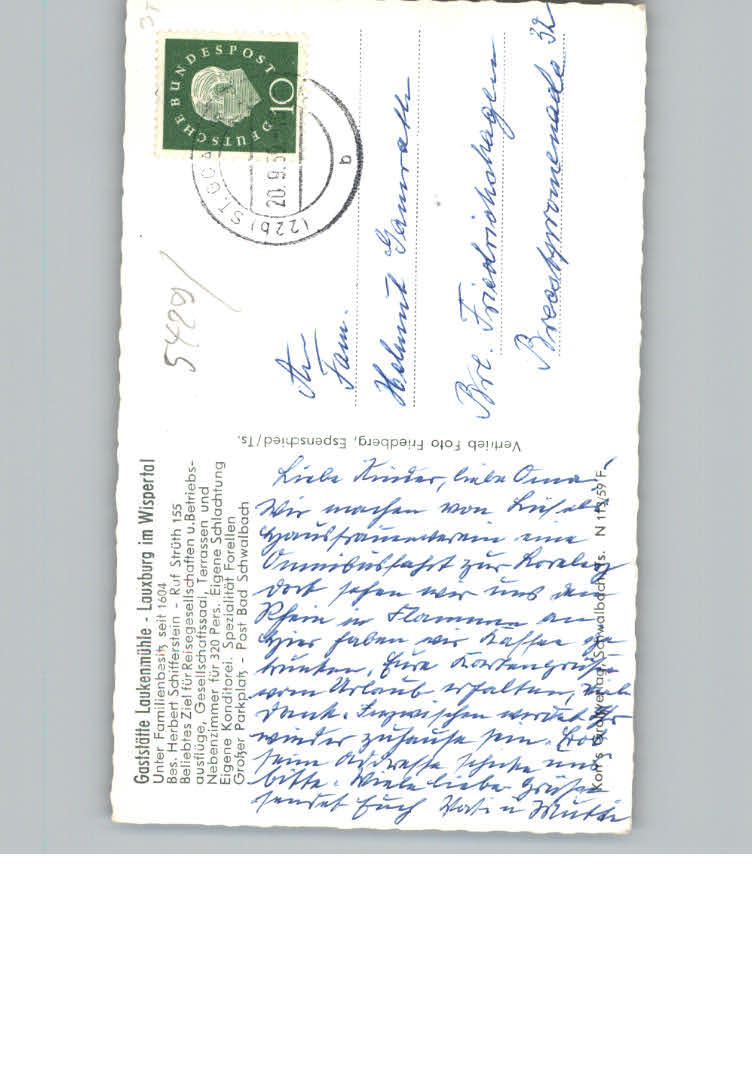 Gaststätte Laukenmühle - Lauxburg im Wispertal
Unter Familienbesitz seit 1604
Bes. Herbert Schifferstein - Ruf Strüth 155
Beliebtes Ziel für Reisegesellschaften u. Betriebs-
ausflüge, Gesellschaftssaal, Terrassen und
Nebenzimmer für 320 Pers. Eigene Schlachtung
Eigene Konditorei. Spezialität Forellen
Großer Parkplatz - Post Bad Schwalbach
Liebe Kinder, liebe Oma!
Wir machen von
Hausfrauenverein eine
Omnibusfahrt zur Loreley
dort sehen wir uns den
Rhein in Flammen an
Hier haben wir Kaffee ge
trunken. Eure Kartengrüße
vom Urlaub erhalten, viele
Dank. Inzwischen werdet Ihr
wieder zuhause sein.
seine Addresse schicke uns
bitte. Viele liebe Grüße
sendet Euch Vati u Mutti
Vertrieb Foto Friedberg, Espenschied/Ts.
Korr's Großverlag, Schwalbach/Ts. N 113/59 F
DEUTSCHE BUNDESPOST
10
(22b) ST. GOA
20.9.5
a
5429
An
Fam.
Helmut Gamrath
Bre. Friedrichshagen
32